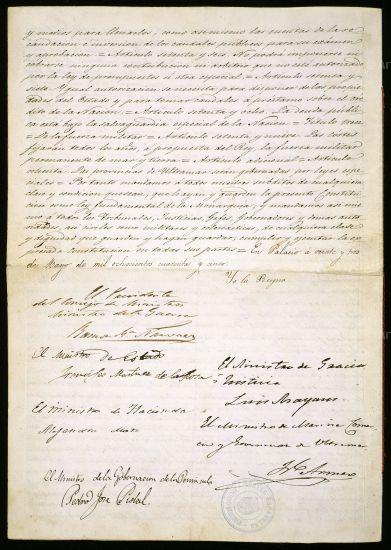 y medios para llenarlos, como asimismo las cuentas de la re-
caudacion é inversion de los caudales publicos para su exámen
y aprobacion = Artículo setenta y seis. No podrá imponerse ni
cobrarse ninguna contribucion ni arbitrio que no esté autorizado
por la ley de presupuestos ú otra especial = Artículo setenta y
siete. Igual autorizacion se necesita para disponer de las propie-
dades del Estado y para tomar caudales á préstamo sobre el cré-
dito de la Nacion = Artículo setenta y ocho. La deuda publica
está bajo la salvaguardia especial de la Nacion = Título trece
= De la fuerza militar = Artículo setenta y nueve. Las Cortes
fijarán todos los años, á propuesta del Rey, la fuerza militar
permanente de mar y tierra = Artículo adicional = Artículo
ochenta. Las provincias de Ultramar serán gobernadas por leyes espe-
ciales = Por tanto mandamos á todos nuestros súbditos de cualquiera
clase y condicion que sean, que hayan y guarden la presente Constitu-
cion como ley fundamental de la Monarquía; y mandamos asi mis-
mo á todos los Tribunales, Justicias, Gefes, Gobernadores y demas auto-
ridades, así civiles como militares y eclesiásticas, de cualquiera clase
y dignidad que guarden y hagan guardar, cumplir y ejecutar la es-
presada Constitucion en todas sus partes = En Palacio á veinte y tres
de Mayo de mil ochocientos cuarenta y cinco.
Yo la Reyna
El Presidente
del Consejo de Ministros
Ministro de la Guerra
Ramon Mª Narvaez
El Ministro de Estado
Francisco Martinez de la Rosa
El Ministro de Gracia
y Justicia
Luis Mayans
El Ministro de Hacienda
Alejandro Mon
El Ministro de Marina, Comer-
cio y Gobernacion de Ultramar
Armero
El Ministro de la Gobernacion de la Península
Pedro José Pidal